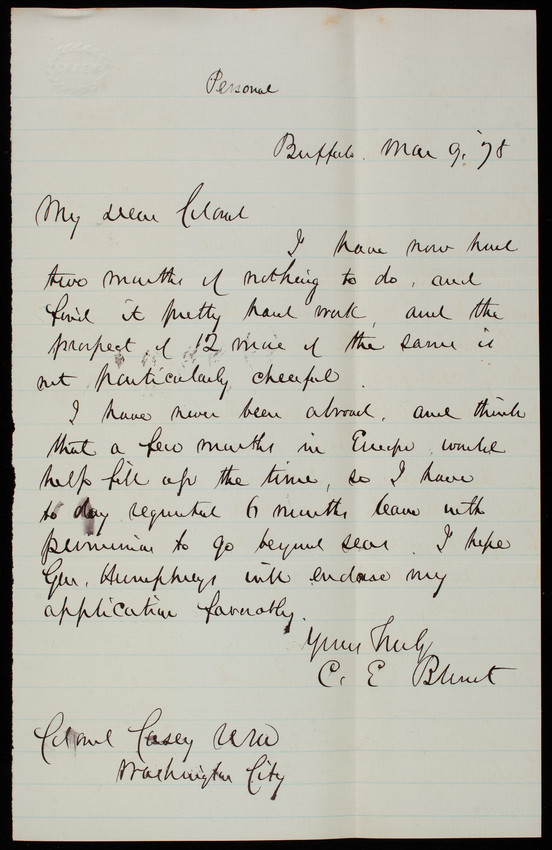 Personal
Buffalo. Mar 9, '78
My dear Colonel
I have now had
two months of nothing to do, and
find it pretty hard work, and the
prospect of 12 more of the same is
not particularly cheerful.
I have never been abroad, and think
that a few months in Europe would
help fill up the time, so I have
to day requested 6 months leave with
permission to go beyond seas. I hope
Gen. Humphreys will endorse my
application favorably.
Yours Truly
C. E. Blunt
Colonel Casey USA
Washington City